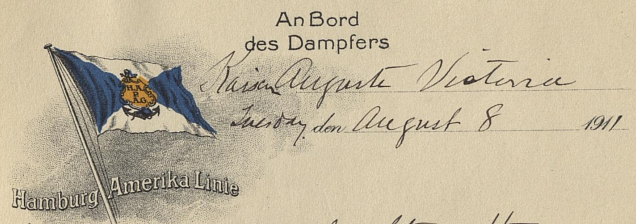 An Bord
des Dampfers
Kaiserin Auguste Victoria
Tuesday, den August 8 1911
H.A.
P.
A.G.
Hamburg Amerika Linie